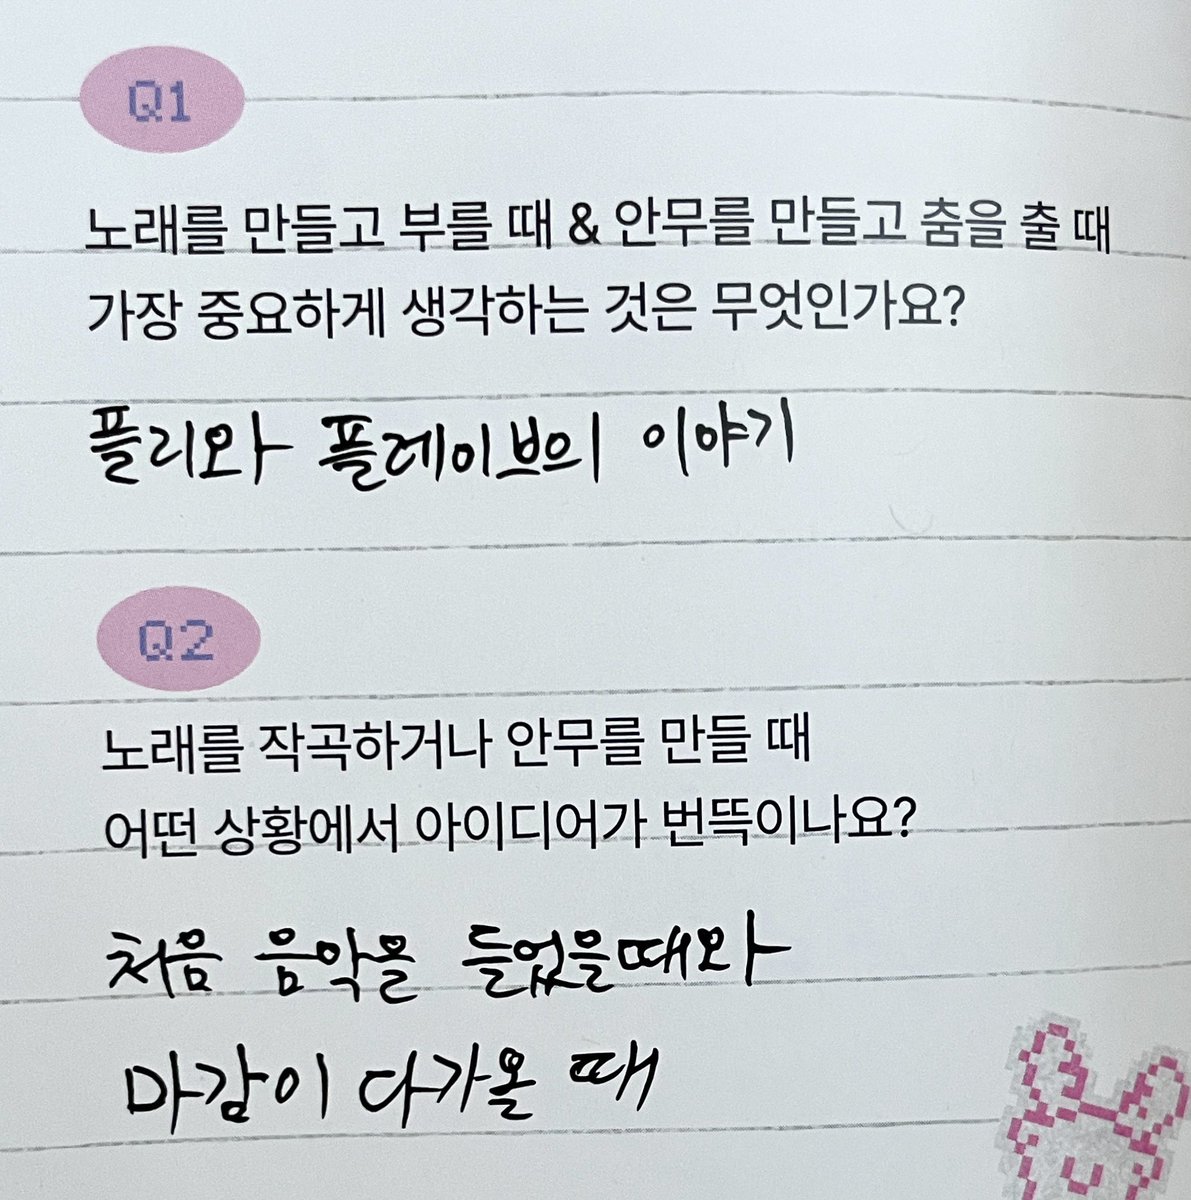 Q1
노래를 만들고 부를 때 & 안무를 만들고 춤을 출 때
가장 중요하게 생각하는 것은 무엇인가요?
플리와 플레이브의 이야기
Q2
노래를 작곡하거나 안무를 만들 때
어떤 상황에서 아이디어가 번뜩이나요?
처음 음악을 들었을때와
마감이 다가올 때